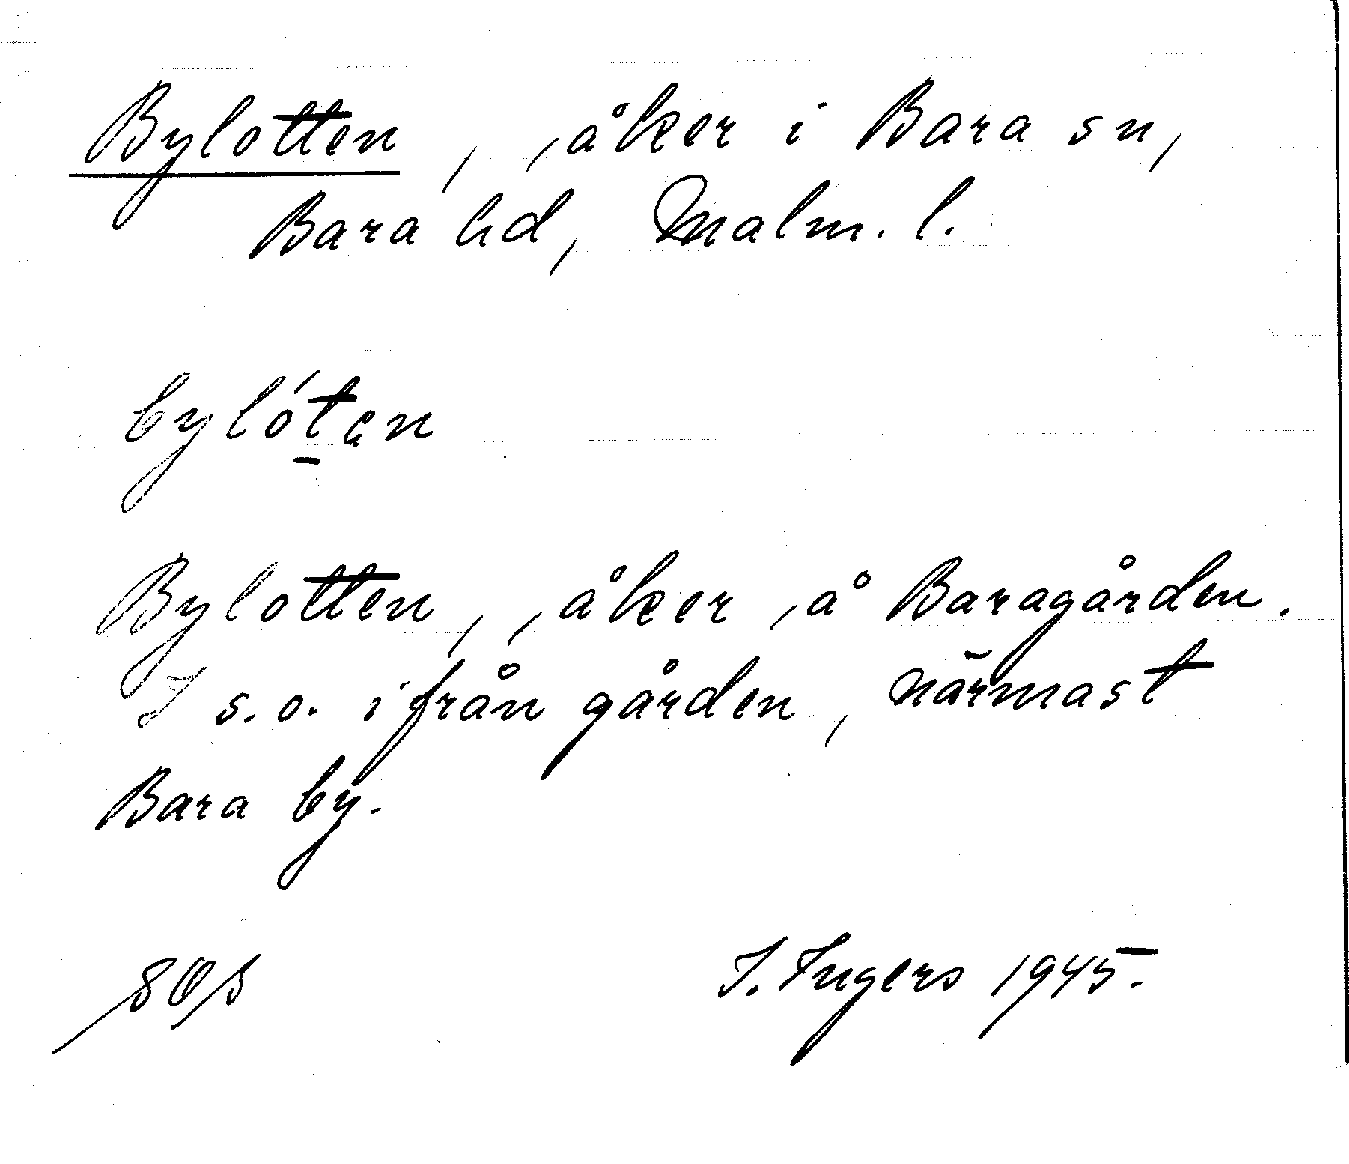 Bylotten, , åker i Bara sn,
Bara hd, Malm. l.
bylótən
Bylotten, , åker å Baragården.
I s.o. ifrån gården, närmast
Bara by.
I. Ingers 1945.